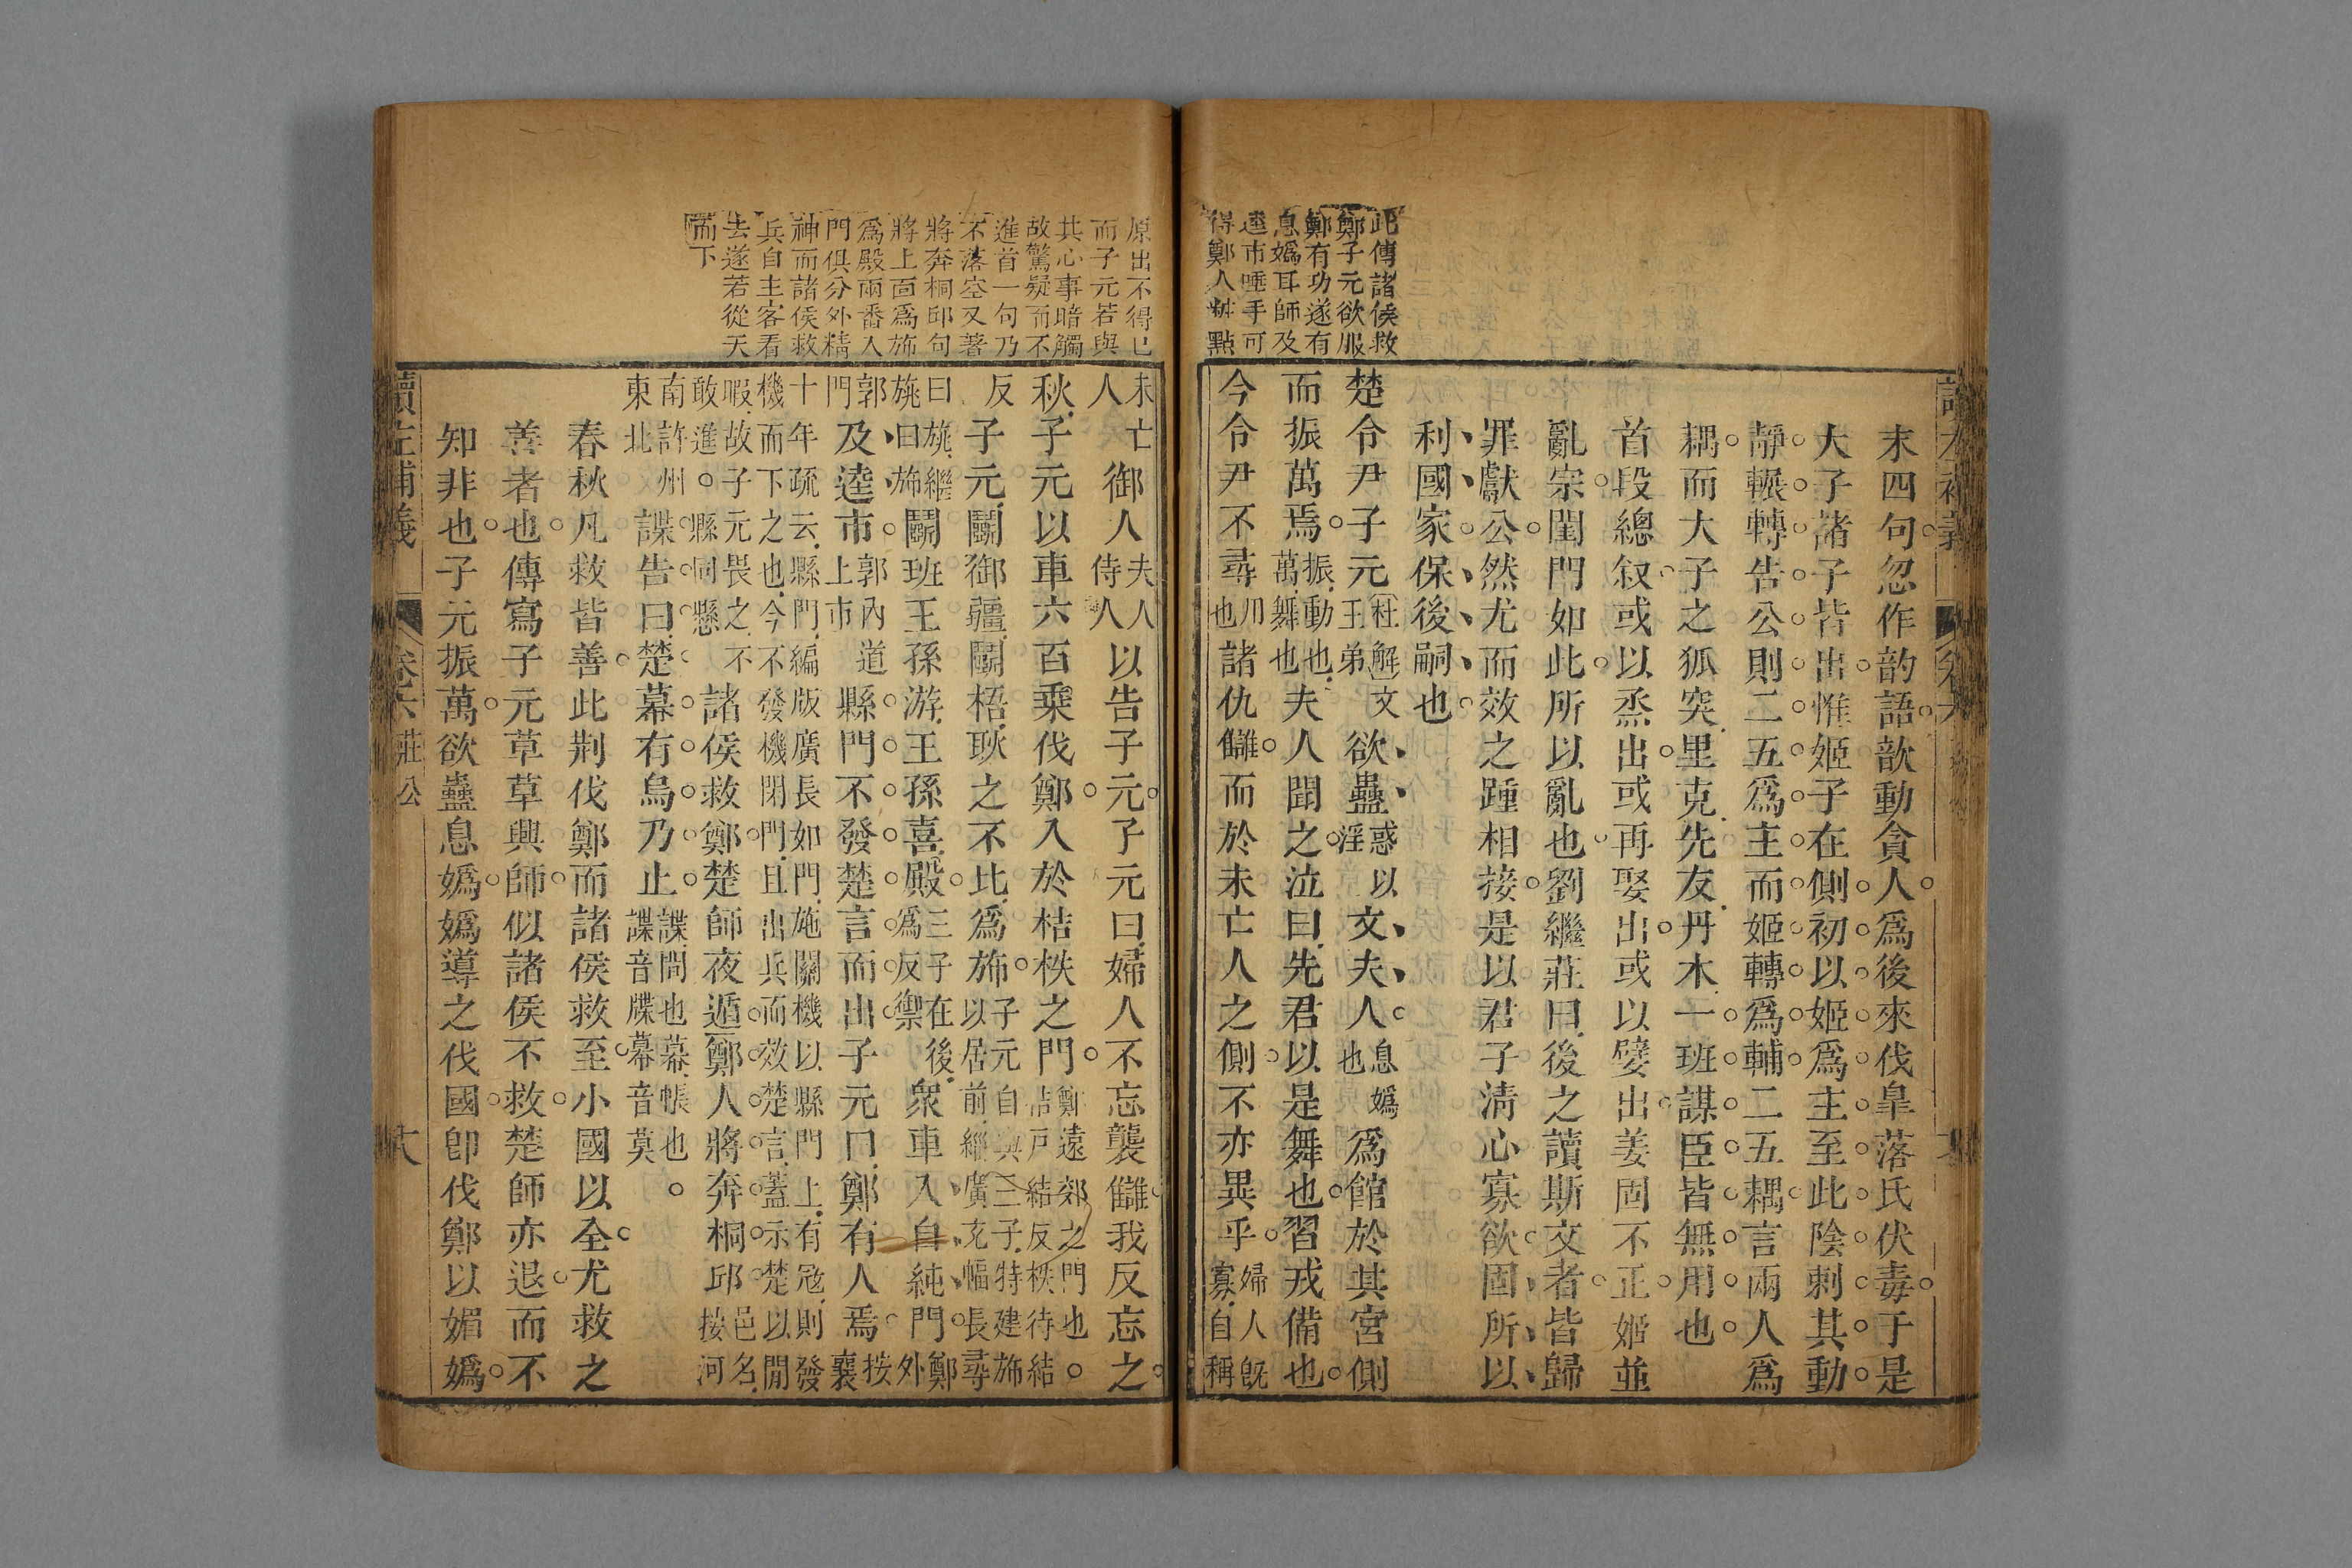 此傳諸侯救
鄭子元欲服
鄭有功遂有
息嬀耳師及
逵市唾手可
得鄭人
點
末四句忽作韵語歆動貪人爲後來伐臯落氏伏毒于是
大子諸子皆出惟姬子在側初以姬爲主至此陰刺其動
靜輾轉告公則二五爲主而姬轉爲輔二五耦言兩人爲
耦而大子之狐突里克先友丹木一班謀臣皆無用也
首段總叙或以烝出或再娶出或以嬖出姜固不正姬並
亂宗閨門如此所以亂也劉繼莊曰後之讀斯文者皆歸
罪獻公然尤而效之踵相接是以君子淸心寡欲固所以
利國家保後嗣也
楚令尹子元杜解文王弟欲蠱惑以淫文夫人息嬀也爲館於其宮側
而振萬焉振動也萬舞也夫人聞之泣曰先君以是舞也習戎備也
今令尹不尋用也諸仇讎而於未亡人之側不亦異乎婦人旣寡自稱
原出不得已
而子元若與
其心事暗觸
故驚疑而不
進首一句乃
不落空又著
將奔桐邱句
將上面爲斾
爲殿兩番入
門俱分外精
神而諸侯救
兵自主客看
去遂若從天
而下
未亡人御人夫人侍人以告子元子元曰婦人不忘襲讎我反忘之
秋子元以車六百乘伐鄭入於桔柣之門鄭遠郊之門也桔戸結反柣待結反
子元鬭御疆鬭梧耿之不比爲斾子元自與三子特建斾以居前繼廣充幅長尋曰旐繼旐曰斾
鬭班王孫游王孫喜殿三子在後爲反禦衆車入自純門鄭外郭門
及逵市郭內道上市縣門不發楚言而出子元曰鄭有人焉按襄十年疏云縣門編版廣長如門施關機以縣門上有寇則發機而下之也今不發機閉門且出兵而效楚言蓋示楚以閒暇故子元畏之不敢進縣同懸
諸侯救鄭楚師夜遁鄭人將奔桐邱邑名按河南許州東北
諜告曰楚幕有烏乃止諜間也幕帳也諜音牒幕音莫
春秋凡救皆善此荆伐鄭而諸侯救至小國以全尤救之
善者也傳寫子元草草興師似諸侯不救楚師亦退而不
知非也子元振萬欲蠱息嬀嬀導之伐國卽伐鄭以媚嬀
讀左補義
卷六 莊公